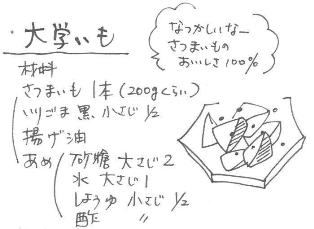 ・大学いも
なつかしいなー
さつまいもの
おいしさ100%
材料
さつまいも 1本(200gくらい)
いりごま 黒 小さじ1/2
揚げ油
あめ 砂糖 大さじ2
水 大さじ1
しょうゆ 小さじ1/2
酢 〃